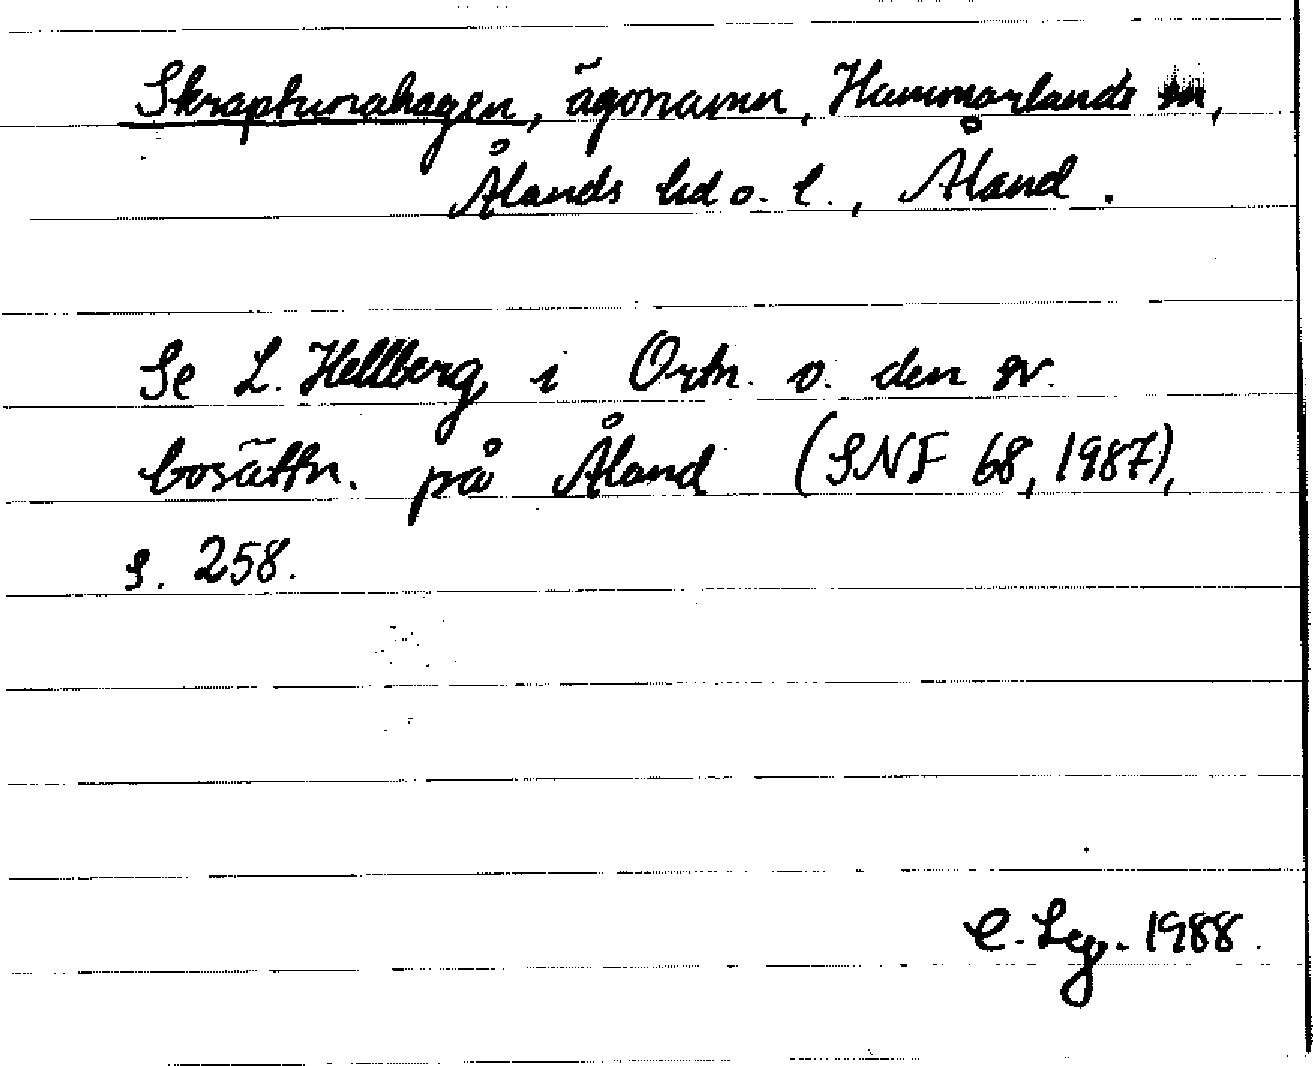 Skraptunahagen, ägonamn, Hammarlands sn,
Ålands hd o. l., Åland.
Se L. Hellberg i Ortn. o. den sv.
bosättn. på Åland (SNF 68, 1987),
s. 258.
C. Leg. 1988.